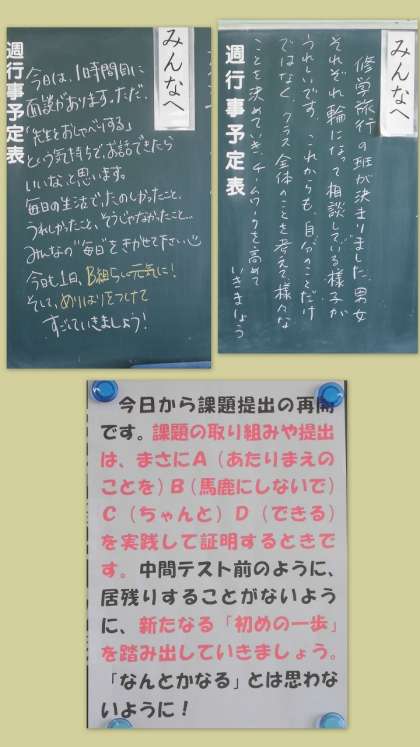 みんなへ
週行事予定表
今日は、1時間目に
面談があります。ただ、
「先生とおしゃべりする」
という気持ちで、お話できたら
いいな、と思います。
毎日の生活で、たのしかったこと、
うれしかったこと、そうじゃなかったこと…
みんなの"毎日"をきかせて下さい
今日も1日、B組らしい元気に!
そして、めりはりをつけて
すごしていきましょう!
みんなへ
修学旅行の班が決まりました。男女
それぞれ輪になって相談している様子が
うれしいです。これからも、自分のことだけ
ではなく、クラス全体のことを考えて様々な
ことを決めていき、チームワークを高めて
いきましょう
週行事予定表
今日から課題提出の再開
です。課題の取り組みや提出
は、まさにA(あたりまえの
ことを)B(馬鹿にしないで)
C(ちゃんと)D(できる)
を実践して証明するときで
す。中間テスト前のように、
居残りすることがないよう
に、新たなる「初めの一歩」
を踏み出していきましょう。
「なんとかなる」とは思わな
いように!